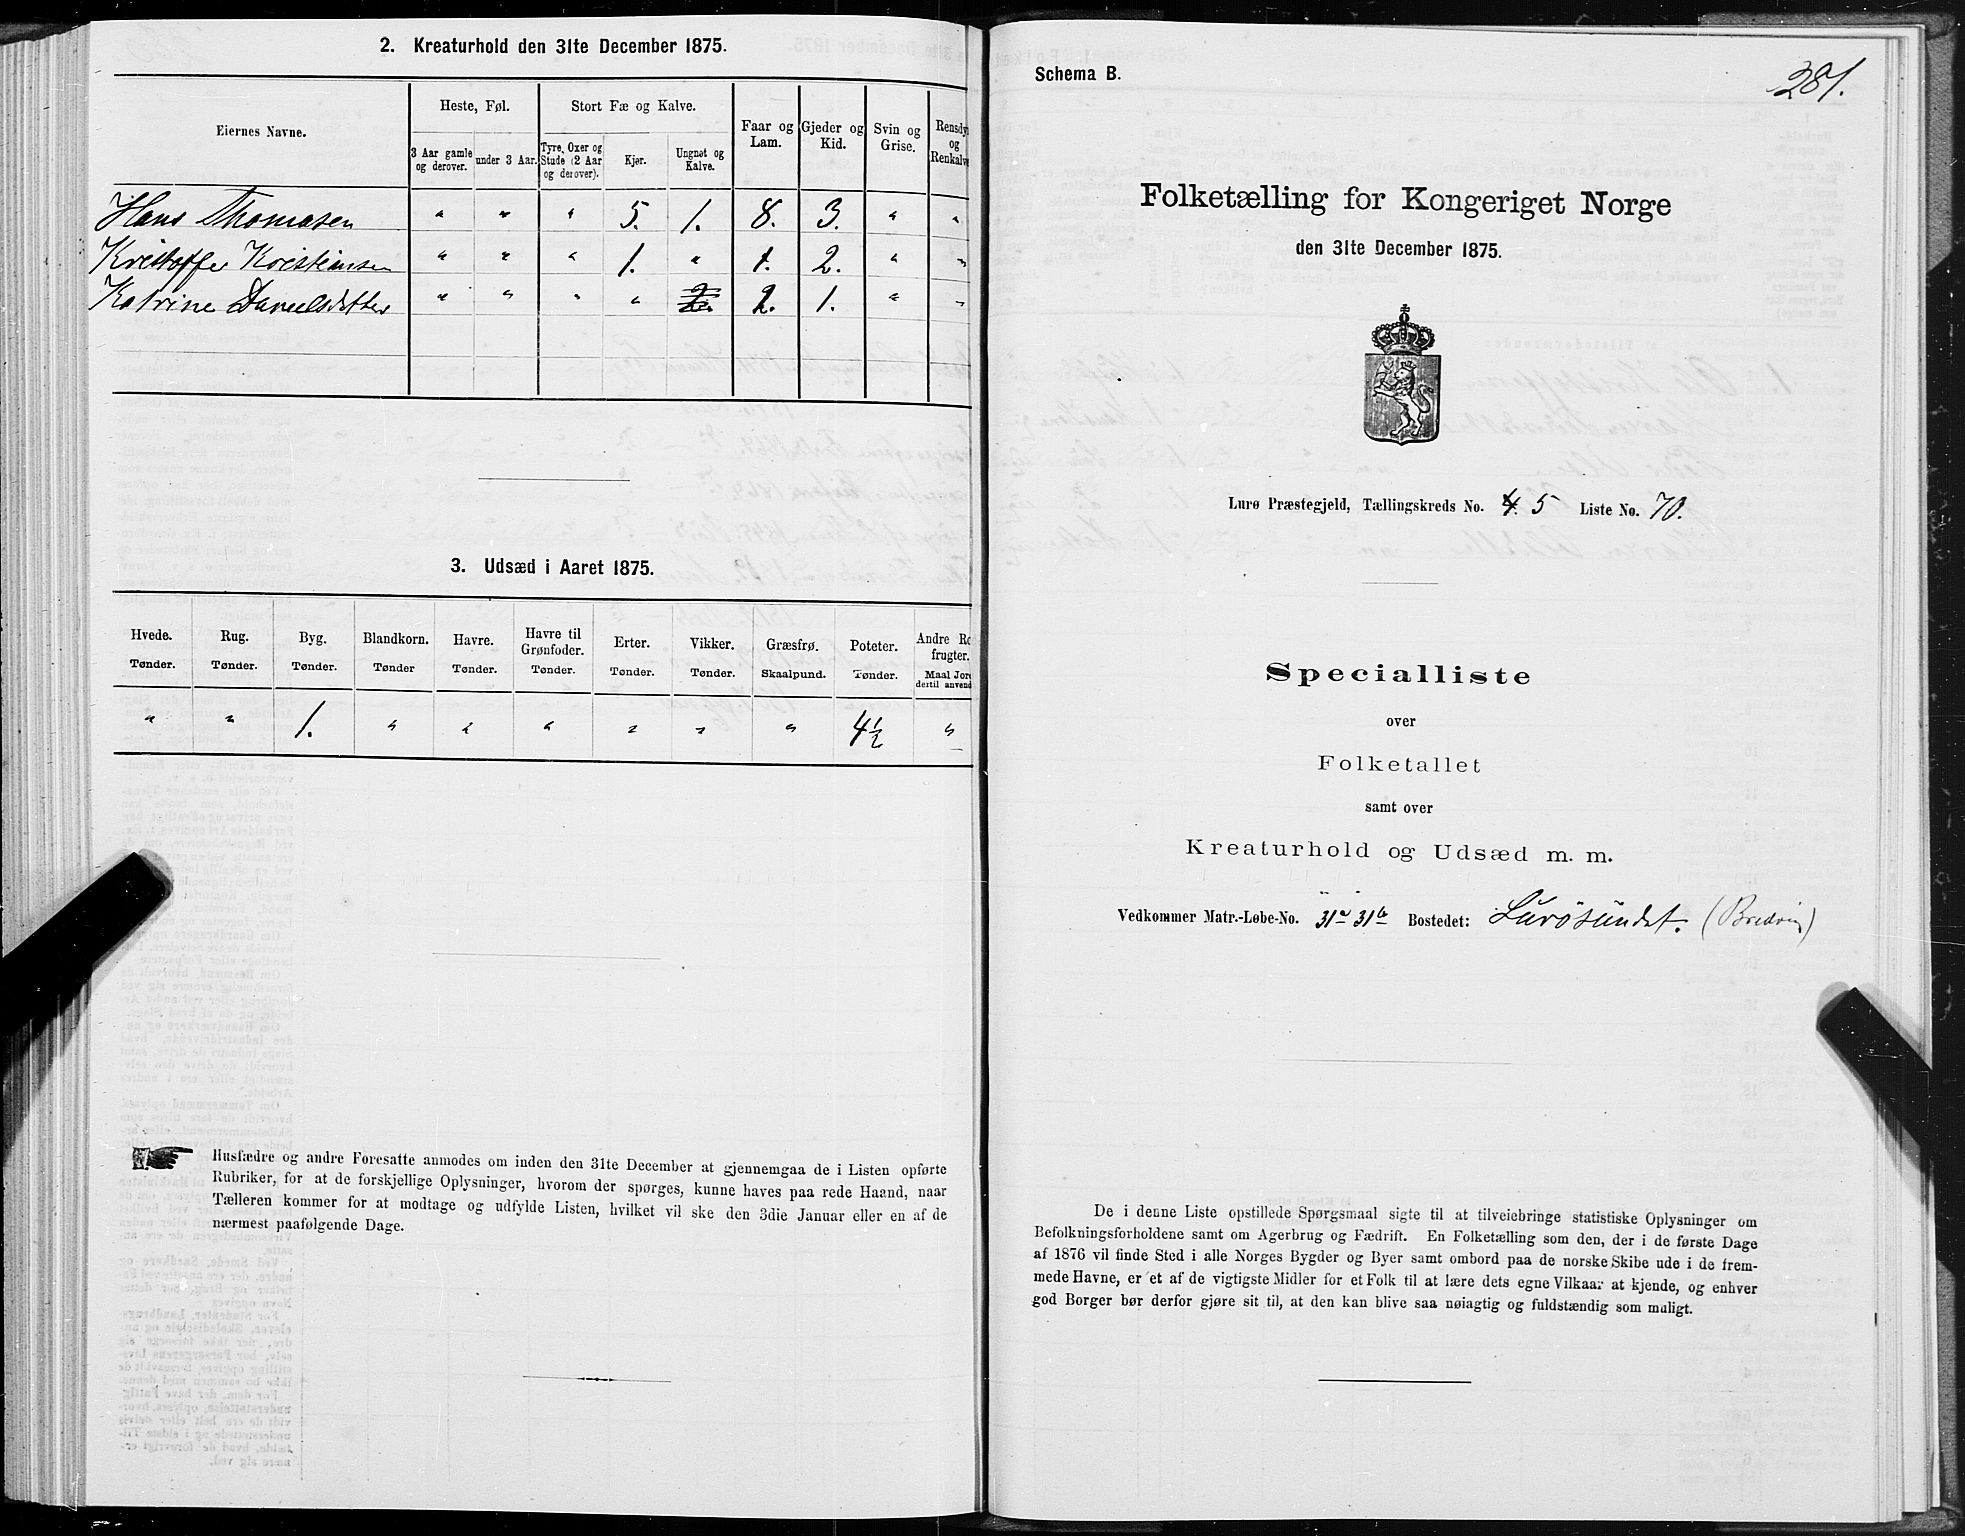 2. Kreaturhold den 31te December 1875.
Eiernes Navne.
Heste, Føl.
Stort Fæ og Kalve.
Faar og Lam.
Gjeder og Kid.
Svin og Grise.
Rensdy og Renkalve
3 Aar gamle og derover.
under 3 Aar.
Tyre, Oxer og Stude (2 Aar og derover).
Kjør.
Ungnøt og Kalve.
Hans Thomasen " " " 5. 1. 8. 3. " "
Kristoffer Kristiansen " " " 1. " 1. 2. " "
Katrine Danielsdatter " " " " 2. 2. 1. " "
3. Udsæd i Aaret 1875.
Hvede. Rug. Byg. Blandkorn. Havre. Havre til Grønfoder. Erter. Vikker. Græsfrø. Poteter. Andre Ro frugter.
Tønder. Tønder. Tønder. Tønder Tønder. Tønder. Tønder. Tønder. Skaalpund. Tønder. Maal Jor dertil anvend
" " 1. " " " " " " 4½ "
Husfædre og andre Foresatte anmodes om inden den 31te December at gjennemgaa de i Listen opførte
Rubriker, for at de forskjellige Oplysninger, hvorom der spørges, kunne haves paa rede Haand, naar
Tælleren kommer for at modtage og udfylde Listen, hvilket vil ske den 3die Januar eller en af de
nærmest paafølgende Dage.
Schema B.
281.
Folketælling for Kongeriget Norge
den 31te December 1875.
Lurø Præstegjeld, Tællingskreds No. 4. 5 Liste No. 70.
Specialliste
over
Folketallet
samt over
Kreaturhold og Udsæd m. m.
Vedkommer Matr.-Løbe-No. 31a 31b Bostedet: Lurøsundet. (Bredvig)
De i denne Liste opstillede Spørgsmaal sigte til at tilveiebringe statistiske Oplysninger om
Befolkningsforholdene samt om Agerbrug og Fædrift. En Folketælling som den, der i de første Dage
af 1876 vil finde Sted i alle Norges Bygder og Byer samt ombord paa de norske Skibe ude i de frem-
mede Havne, er et af de vigtigste Midler for et Folk til at lære dets egne Vilkaar at kjende, og enhver
god Borger bør derfor gjøre sit til, at den kan blive saa nøiagtig og fuldstændig som muligt.